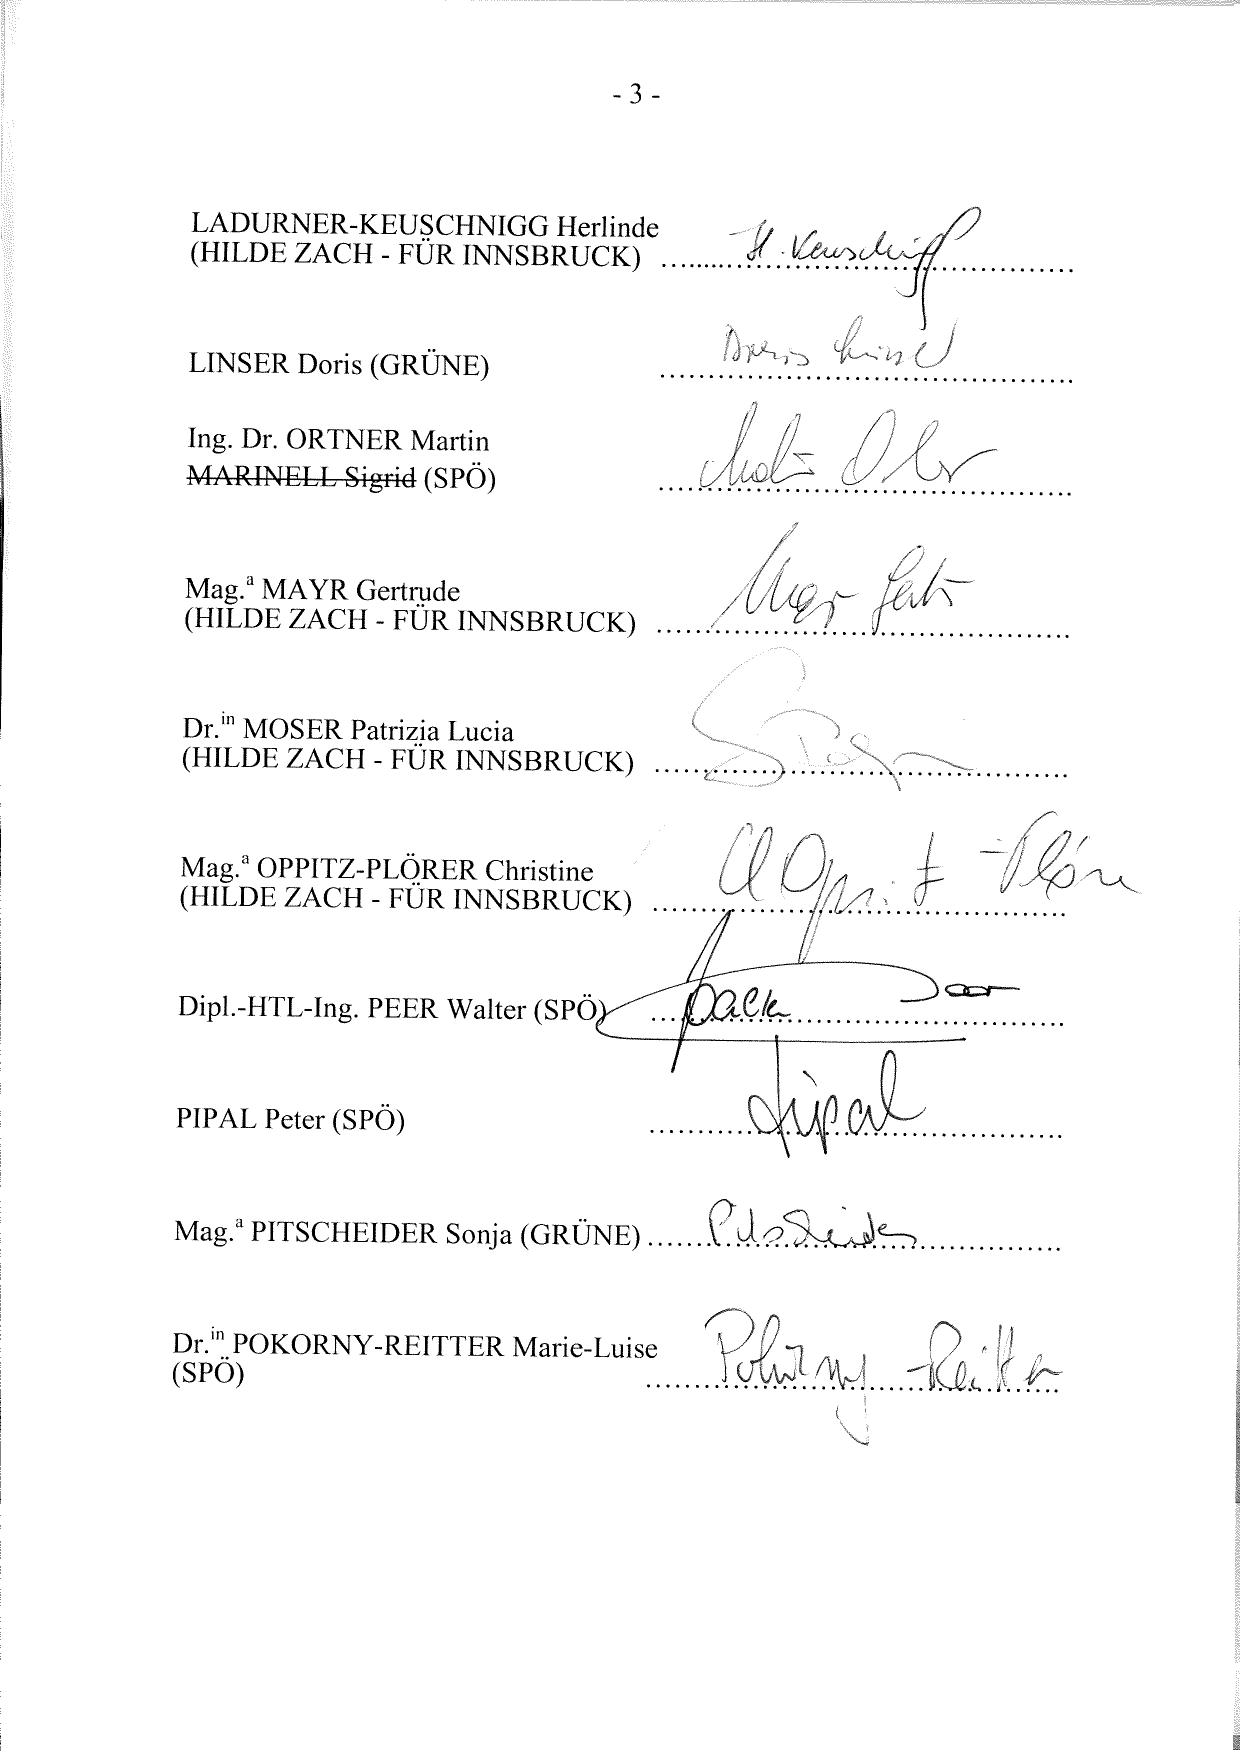 - 3 -
LADURNER-KEUSCHNIGG Herlinde
(HILDE ZACH - FÜR INNSBRUCK) ..........H. Keuschnigg..........
LINSER Doris (GRÜNE) ..........Doris Linser..........
Ing. Dr. ORTNER Martin
MARINELL Sigrid (SPÖ) ....................
Mag.ª MAYR Gertrude
(HILDE ZACH - FÜR INNSBRUCK) ..........Mayr..........
Dr.in MOSER Patrizia Lucia
(HILDE ZACH - FÜR INNSBRUCK) ....................
Mag.ª OPPITZ-PLÖRER Christine
(HILDE ZACH - FÜR INNSBRUCK) ....................
Dipl.-HTL-Ing. PEER Walter (SPÖ) ....................
PIPAL Peter (SPÖ) ..........Pipal..........
Mag.ª PITSCHEIDER Sonja (GRÜNE) ..........Pitscheider..........
Dr.in POKORNY-REITTER Marie-Luise Pokorny-Reitter
(SPÖ) ....................